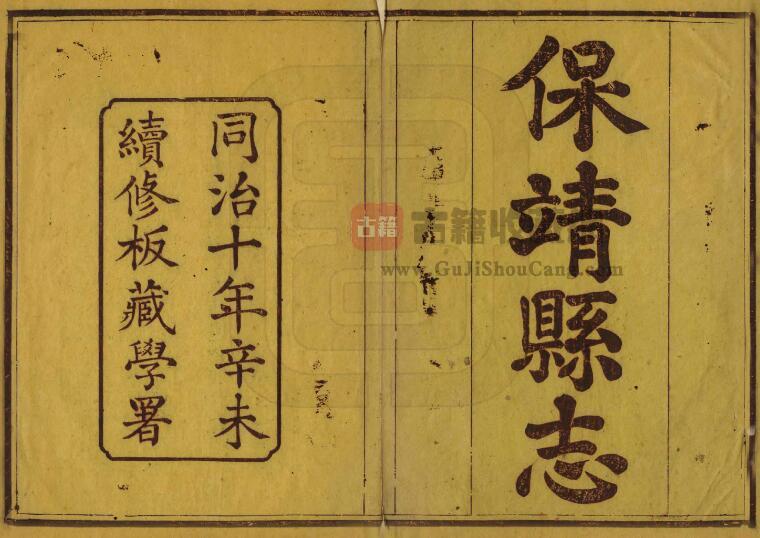 保靖縣志
同治十年辛未
續修板藏學署
古籍
古籍收
www.GuJiShouCang.com